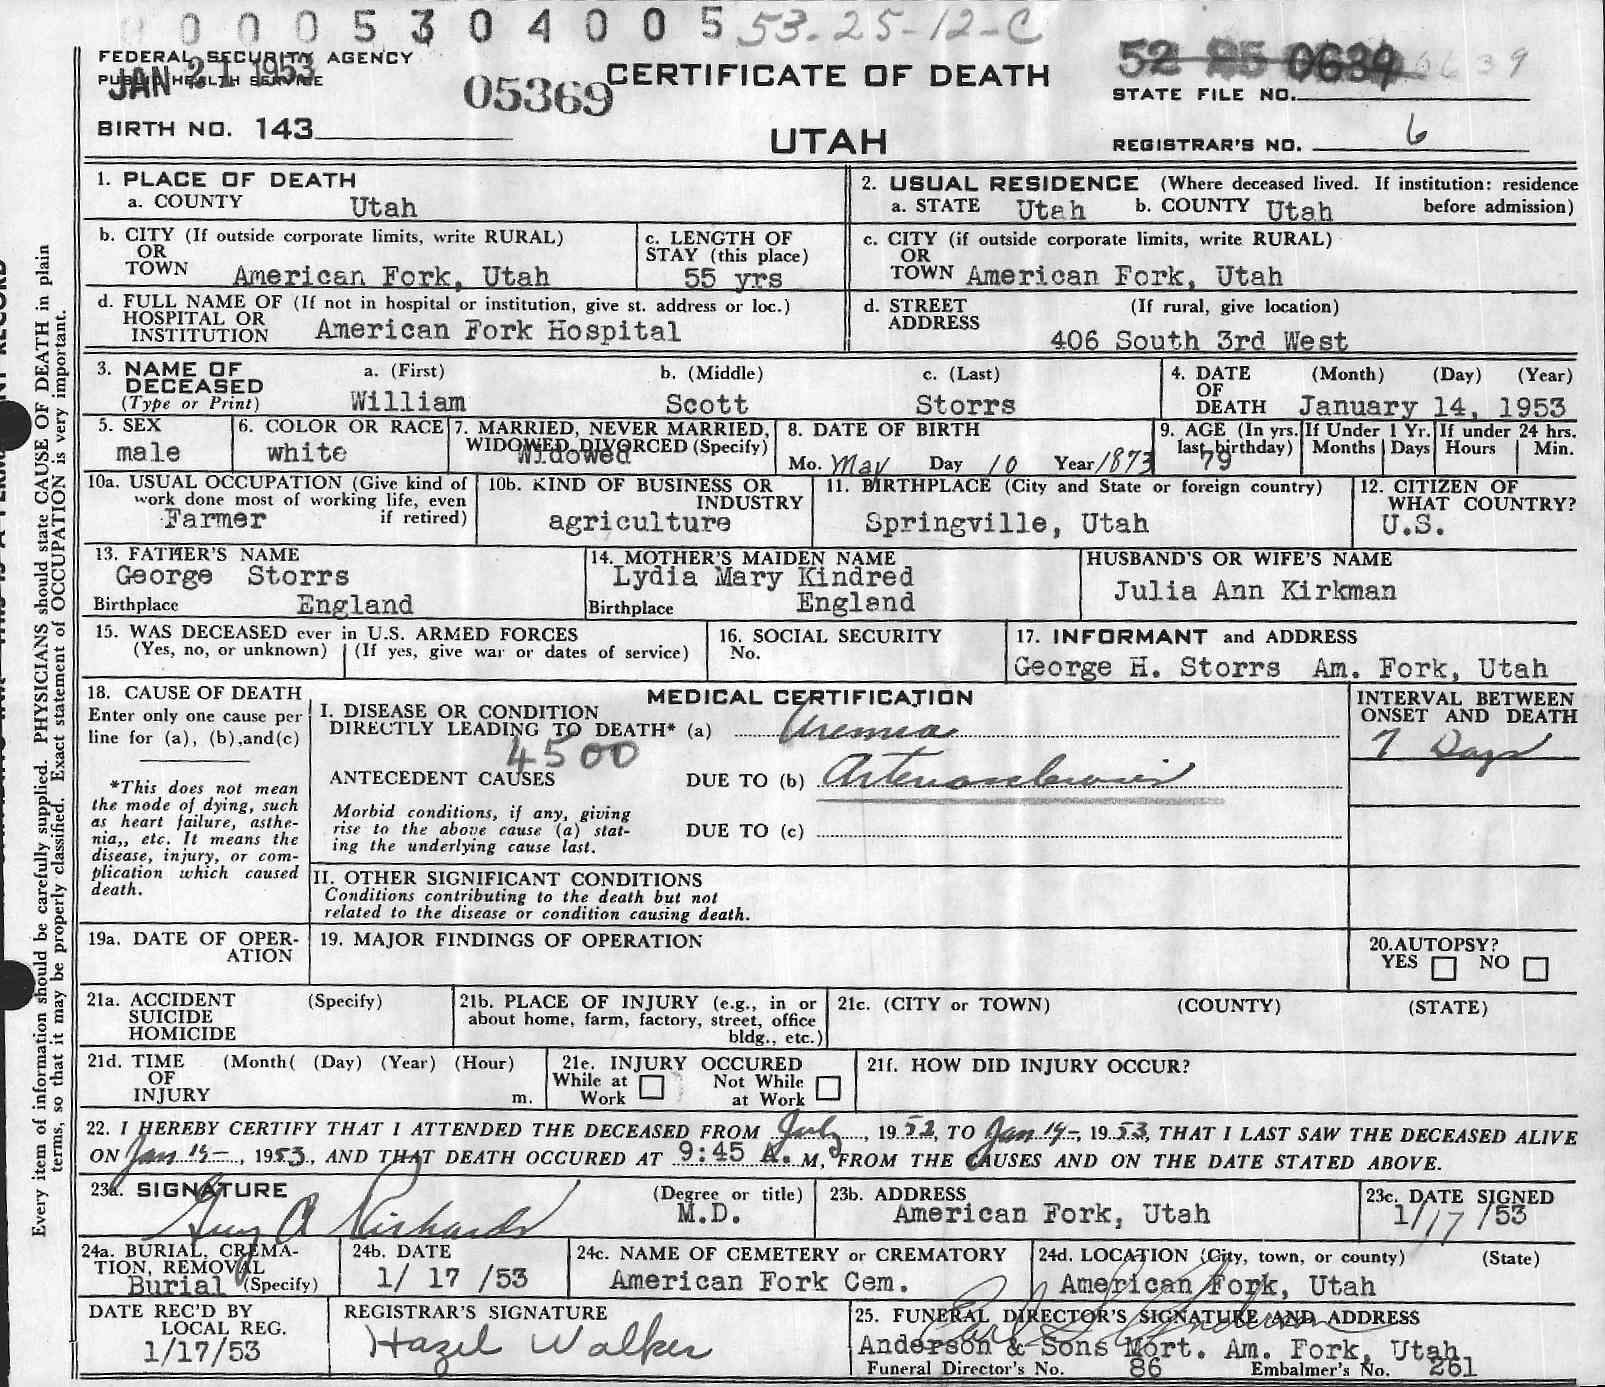 0 0 0 5 3 0 4 0 0 5 53-25-12-C
FEDERAL SECURITY AGENCY
PUBLIC HEALTH SERVICE
JAN 21 1953
05369
CERTIFICATE OF DEATH
UTAH
52 25 0639 6639
STATE FILE NO.
BIRTH NO. 143
REGISTRAR'S NO. 6
1. PLACE OF DEATH
a. COUNTY Utah
2. USUAL RESIDENCE (Where deceased lived. If institution: residence
a. STATE Utah b. COUNTY Utah before admission)
b. CITY (If outside corporate limits, write RURAL)
OR
TOWN American Fork, Utah
c. LENGTH OF
STAY (this place)
55 yrs
c. CITY (if outside corporate limits, write RURAL)
OR
TOWN American Fork, Utah
d. FULL NAME OF (If not in hospital or institution, give st. address or loc.)
HOSPITAL OR
INSTITUTION American Fork Hospital
d. STREET (If rural, give location)
ADDRESS
406 South 3rd West
3. NAME OF
DECEASED
(Type or Print)
a. (First) b. (Middle) c. (Last)
William Scott Storrs
4. DATE (Month) (Day) (Year)
OF
DEATH January 14, 1953
5. SEX
male
6. COLOR OR RACE
white
7. MARRIED, NEVER MARRIED,
WIDOWED, DIVORCED (Specify)
Widowed
8. DATE OF BIRTH
Mo. May Day 10 Year 1873
9. AGE (In yrs.
last birthday)
79
If Under 1 Yr.
Months Days
If under 24 hrs.
Hours Min.
10a. USUAL OCCUPATION (Give kind of
work done most of working life, even
Farmer if retired)
10b. KIND OF BUSINESS OR
INDUSTRY
agriculture
11. BIRTHPLACE (City and State or foreign country)
Springville, Utah
12. CITIZEN OF
WHAT COUNTRY?
U.S.
13. FATHER'S NAME
George Storrs
Birthplace England
14. MOTHER'S MAIDEN NAME
Lydia Mary Kindred
Birthplace England
HUSBAND'S OR WIFE'S NAME
Julia Ann Kirkman
15. WAS DECEASED ever in U.S. ARMED FORCES
(Yes, no, or unknown) (If yes, give war or dates of service)
16. SOCIAL SECURITY
No.
17. INFORMANT and ADDRESS
George H. Storrs Am. Fork, Utah
18. CAUSE OF DEATH
Enter only one cause per
line for (a), (b),and(c)
*This does not mean
the mode of dying, such
as heart failure, asthe-
nia,, etc. It means the
disease, injury, or com-
plication which caused
death.
MEDICAL CERTIFICATION
I. DISEASE OR CONDITION
DIRECTLY LEADING TO DEATH* (a) Uremia
4500
ANTECEDENT CAUSES DUE TO (b) Arteriosclerosis
Morbid conditions, if any, giving
rise to the above cause (a) stat-
ing the underlying cause last.
DUE TO (c)
INTERVAL BETWEEN
ONSET AND DEATH
7 Days
II. OTHER SIGNIFICANT CONDITIONS
Conditions contributing to the death but not
related to the disease or condition causing death.
19a. DATE OF OPER-
ATION
19. MAJOR FINDINGS OF OPERATION
20.AUTOPSY?
YES NO
21a. ACCIDENT (Specify)
SUICIDE
HOMICIDE
21b. PLACE OF INJURY (e.g., in or
about home, farm, factory, street, office
bldg., etc.)
21c. (CITY or TOWN) (COUNTY) (STATE)
21d. TIME (Month( (Day) (Year) (Hour)
OF
INJURY m.
21e. INJURY OCCURED
While at Not While
Work at Work
21f. HOW DID INJURY OCCUR?
22. I HEREBY CERTIFY THAT I ATTENDED THE DECEASED FROM July, 1952, TO Jan 14-, 1953, THAT I LAST SAW THE DECEASED ALIVE
ON Jan 14-, 1953, AND THAT DEATH OCCURED AT 9:45 A. M, FROM THE CAUSES AND ON THE DATE STATED ABOVE.
23a. SIGNATURE (Degree or title)
Guy A Richards M.D.
23b. ADDRESS
American Fork, Utah
23c. DATE SIGNED
1/17/53
24a. BURIAL, CREMA-
TION, REMOVAL
Burial (Specify)
24b. DATE
1/ 17 /53
24c. NAME OF CEMETERY or CREMATORY
American Fork Cem.
24d. LOCATION (City, town, or county) (State)
American Fork, Utah
DATE REC'D BY
LOCAL REG.
1/17/53
REGISTRAR'S SIGNATURE
Hazel Walker
25. FUNERAL DIRECTOR'S SIGNATURE AND ADDRESS
Anderson & Sons Mort. Am. Fork, Utah
Funeral Director's No. 86 Embalmer's No. 261
Every item of information should be carefully supplied. PHYSICIANS should state CAUSE OF DEATH in plain
terms, so that it may be properly classified. Exact statement of OCCUPATION is very important.